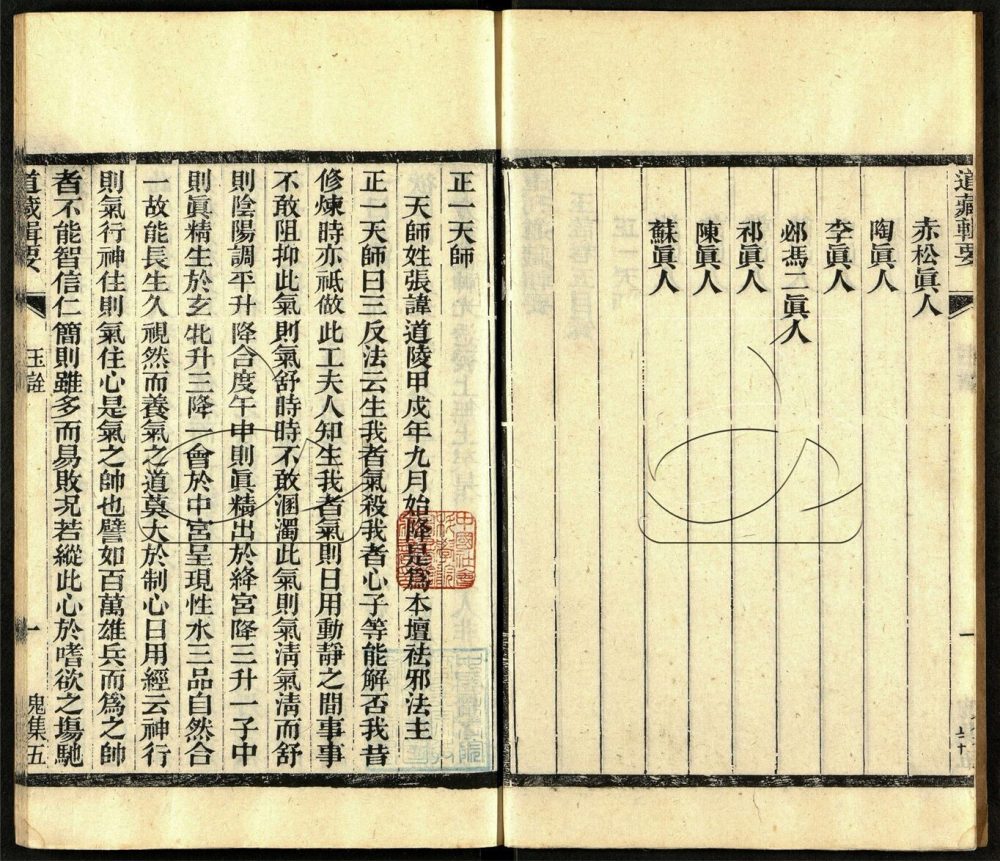 道藏輯要
赤松眞人
陶眞人
李眞人
邲馮二眞人
祁眞人
陳眞人
蘇眞人
一
正一天師
天師姓張諱道陵甲戌年九月始降是爲本壇祛邪法主
正一天師曰三反法云生我者氣殺我者心子等能解否我昔
修煉時亦祇做此工夫人知生我者氣則日用動靜之間事事
不敢阻抑此氣則氣舒時時不敢溷濁此氣則氣淸氣淸而舒
則陰陽調平升降合度午申則眞精出於絳宮降三升一子中
則眞精生於玄牝升三降一會於中宮呈現性水三品自然合
一故能長生久視然而養氣之道莫大於制心日用經云神行
則氣行神住則氣住心是氣之師也譬如百萬雄兵而爲之帥
者不能智信仁簡則雖多而易敗况若縱此心於嗜欲之塲馳
道藏輯要
玉詮
一
鬼集五